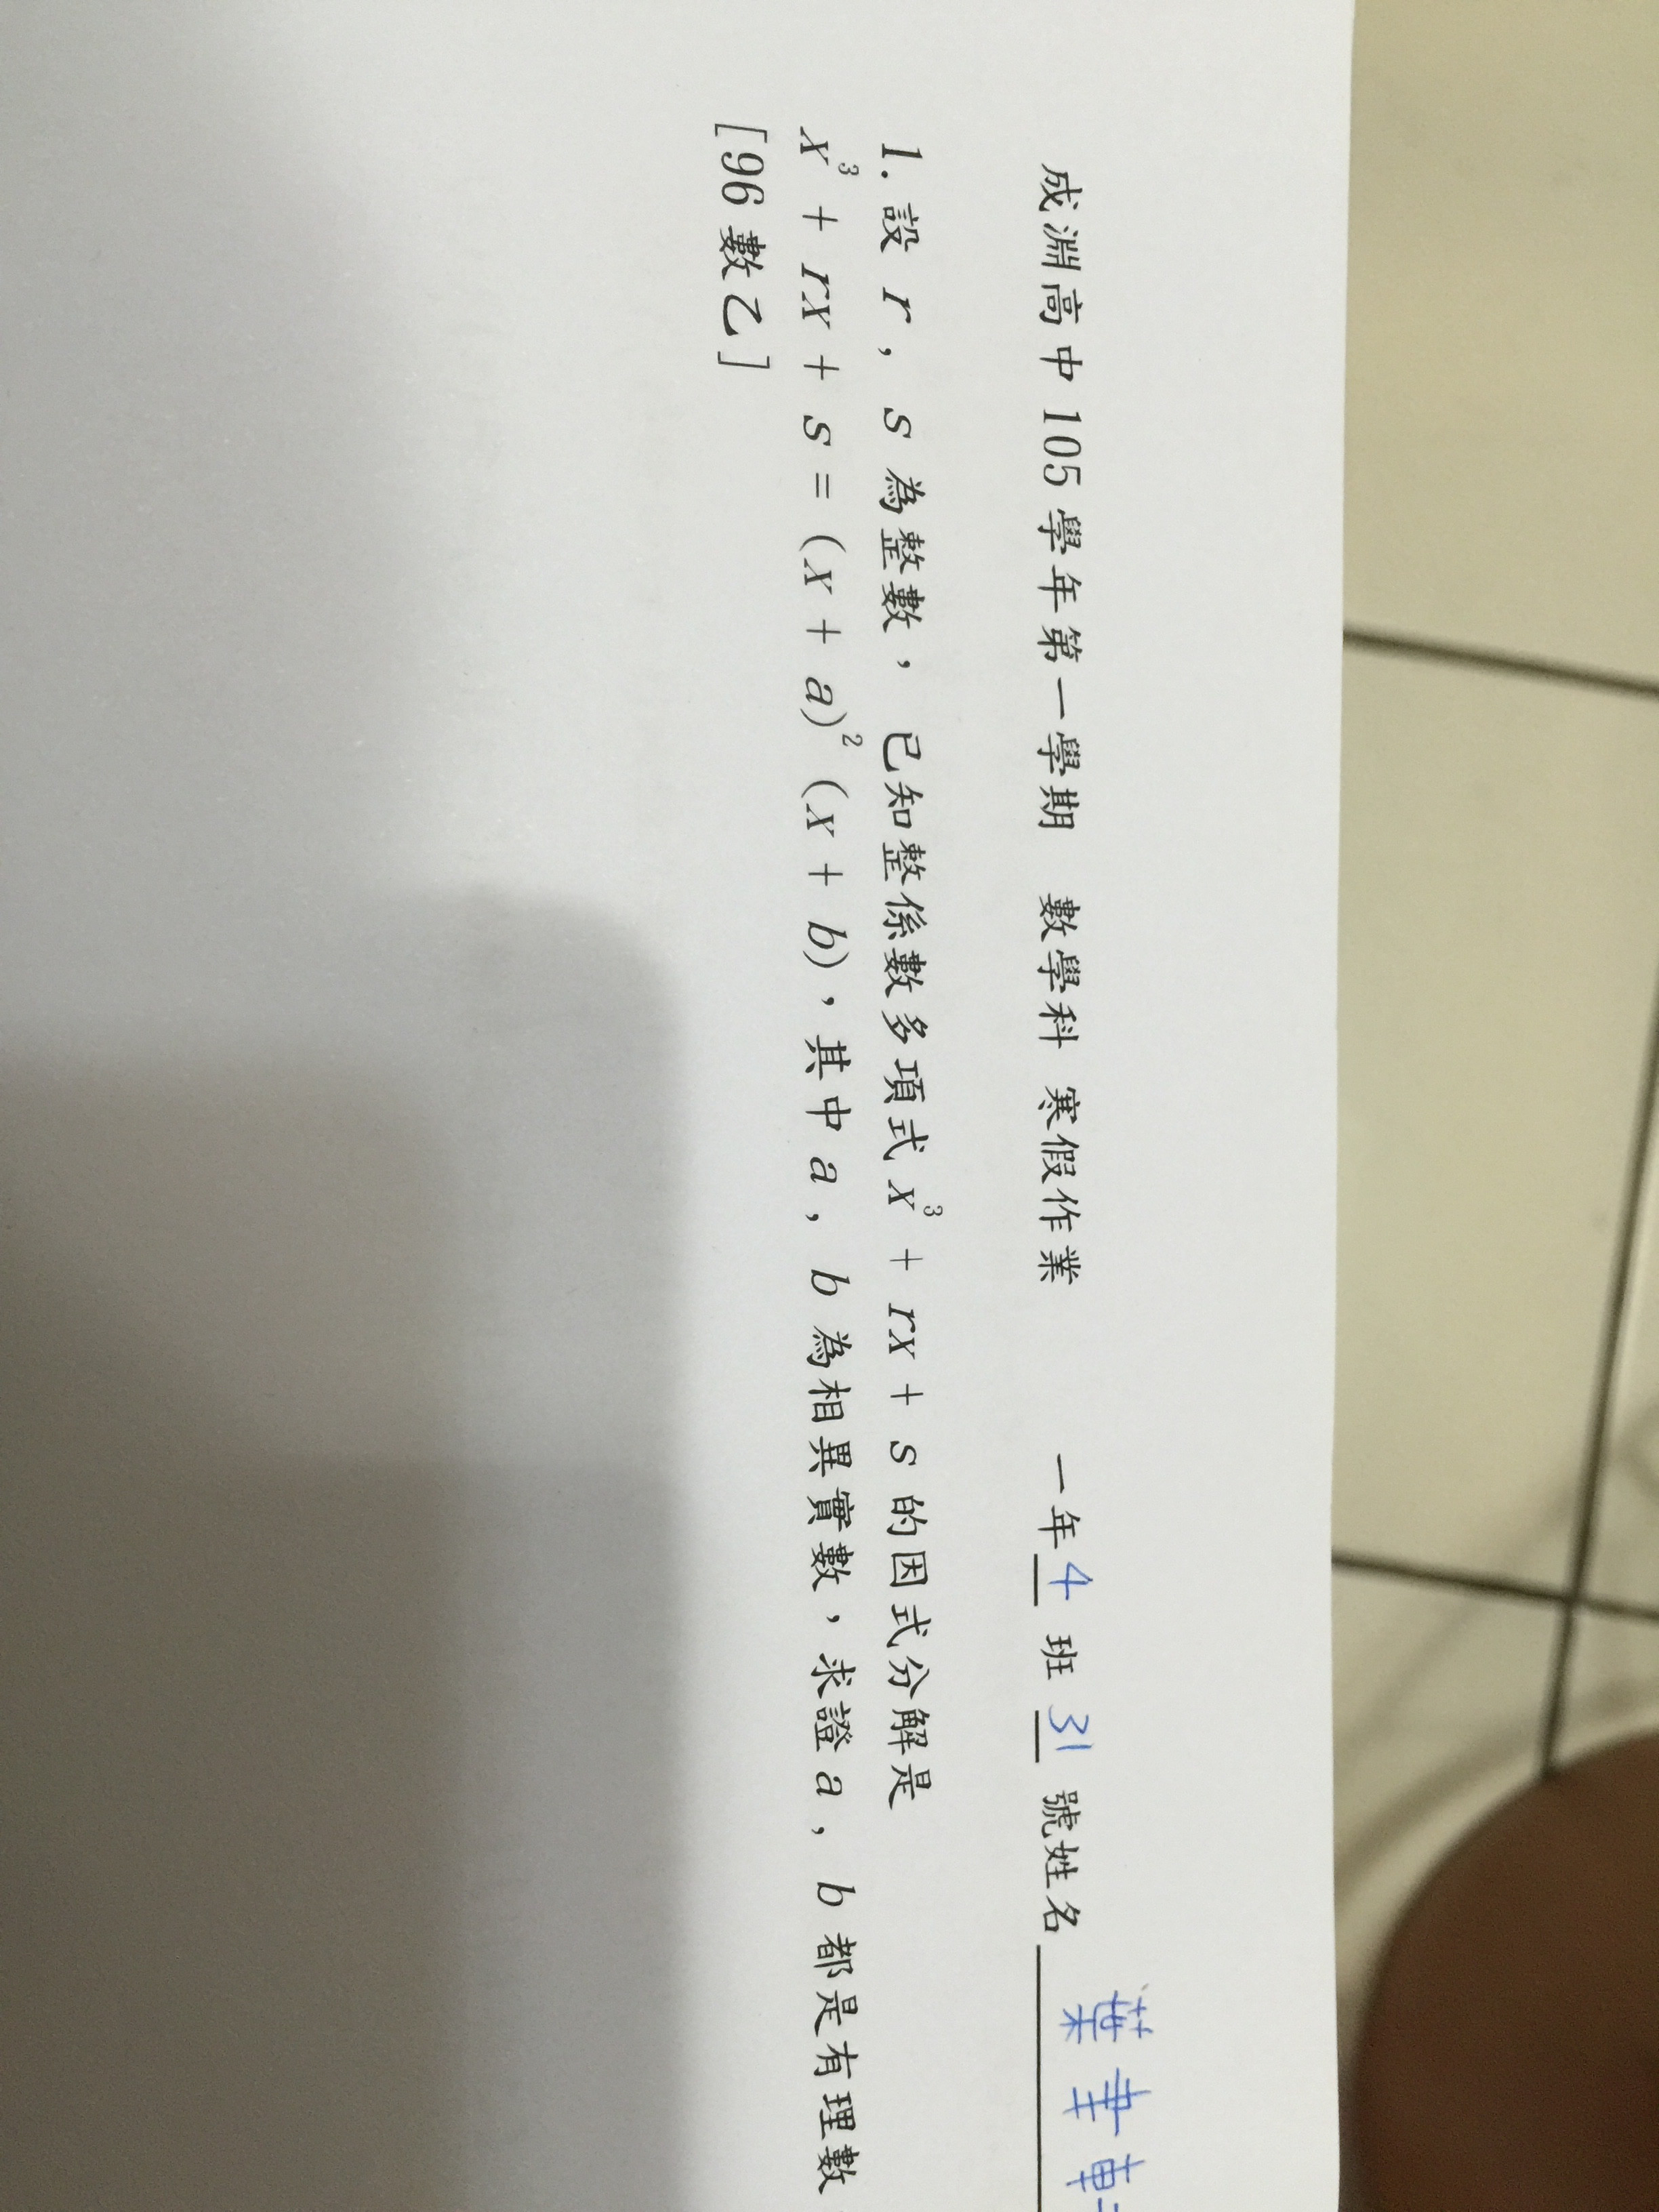 成淵高中105學年第一學期 數學科 寒假作業 一年4班31號姓名 葉
1.設 r,s 為整數,已知整係數多項式 x³ + rx + s 的因式分解是
x³ + rx + s = (x + a)² (x + b),其中 a,b 為相異實數,求證 a,b 都是有理數
[96數乙]